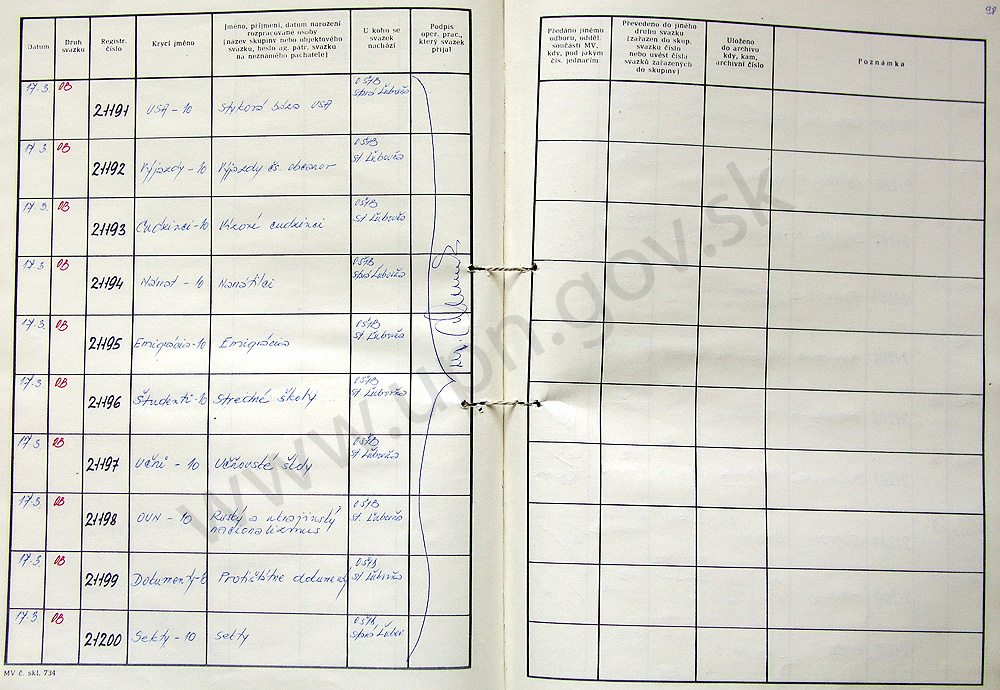 98
Datum
Druh
svazku
Registr.
číslo
Krycí jméno
Jméno, příjmení, datum narození
rozpracované osoby
(název skupiny nebo objektového
svazku, heslo ag. pátr. svazku
na neznámého pachatele)
U koho se
svazek
nachází
Podpis
oper. prac.,
který svazek
přijal
Předáno jinému
odboru, odděl.
součásti MV,
kdy, pod jakým
čís. jednacím
Převedeno do jiného
druhu svazku
(zařazen do skup.
svazku číslo
nebo uvést čísla
svazků zařazených
do skupiny)
Uloženo
do archivu
kdy, kam,
archivní číslo
Poznámka
17. 3. OB 21191 USA - 10 Styková báza USA OŠtB
Stará Ľubovňa
17. 3. OB 21192 Výjazdy - 10 Výjazdy čs. občanov OŠtB
St Ľubovňa
17. 3. OB 21193 Cudzinci - 10 cudzinci OŠtB
St Ľubovňa
17. 3. OB 21194 Návrat - 10 Navrátilci OŠtB
Stará Ľubovňa
17. 3. OB 21195 Emigrácia - 10 Emigrácia OŠtB
St. Ľubovňa
17. 3. OB 21196 Študenti - 10 Stredné školy OŠtB
St Ľubovňa
17. 3. OB 21197 Učni - 10 Učňovské školy OŠtB
St. Ľubovňa
17. 3. OB 21198 OUN - 10 Ruský a ukrajinský
nacionalizmus OŠtB
St. Ľubovňa
17. 3. OB 21199 Protištátne dokumenty OŠtB
St Ľubovňa
17. 3. OB 21200 Sekty - 10 Sekty OŠtB
Stará Ľubov
MV č. skl. 734
www.upn.gov.sk